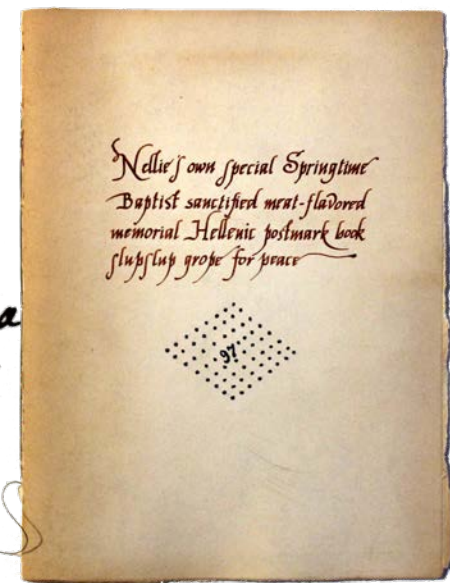 Nellie's own special Springtime
Baptist sanctified meat-flavored
memorial Hellenic postmark book
slupslup grope for peace
97
a